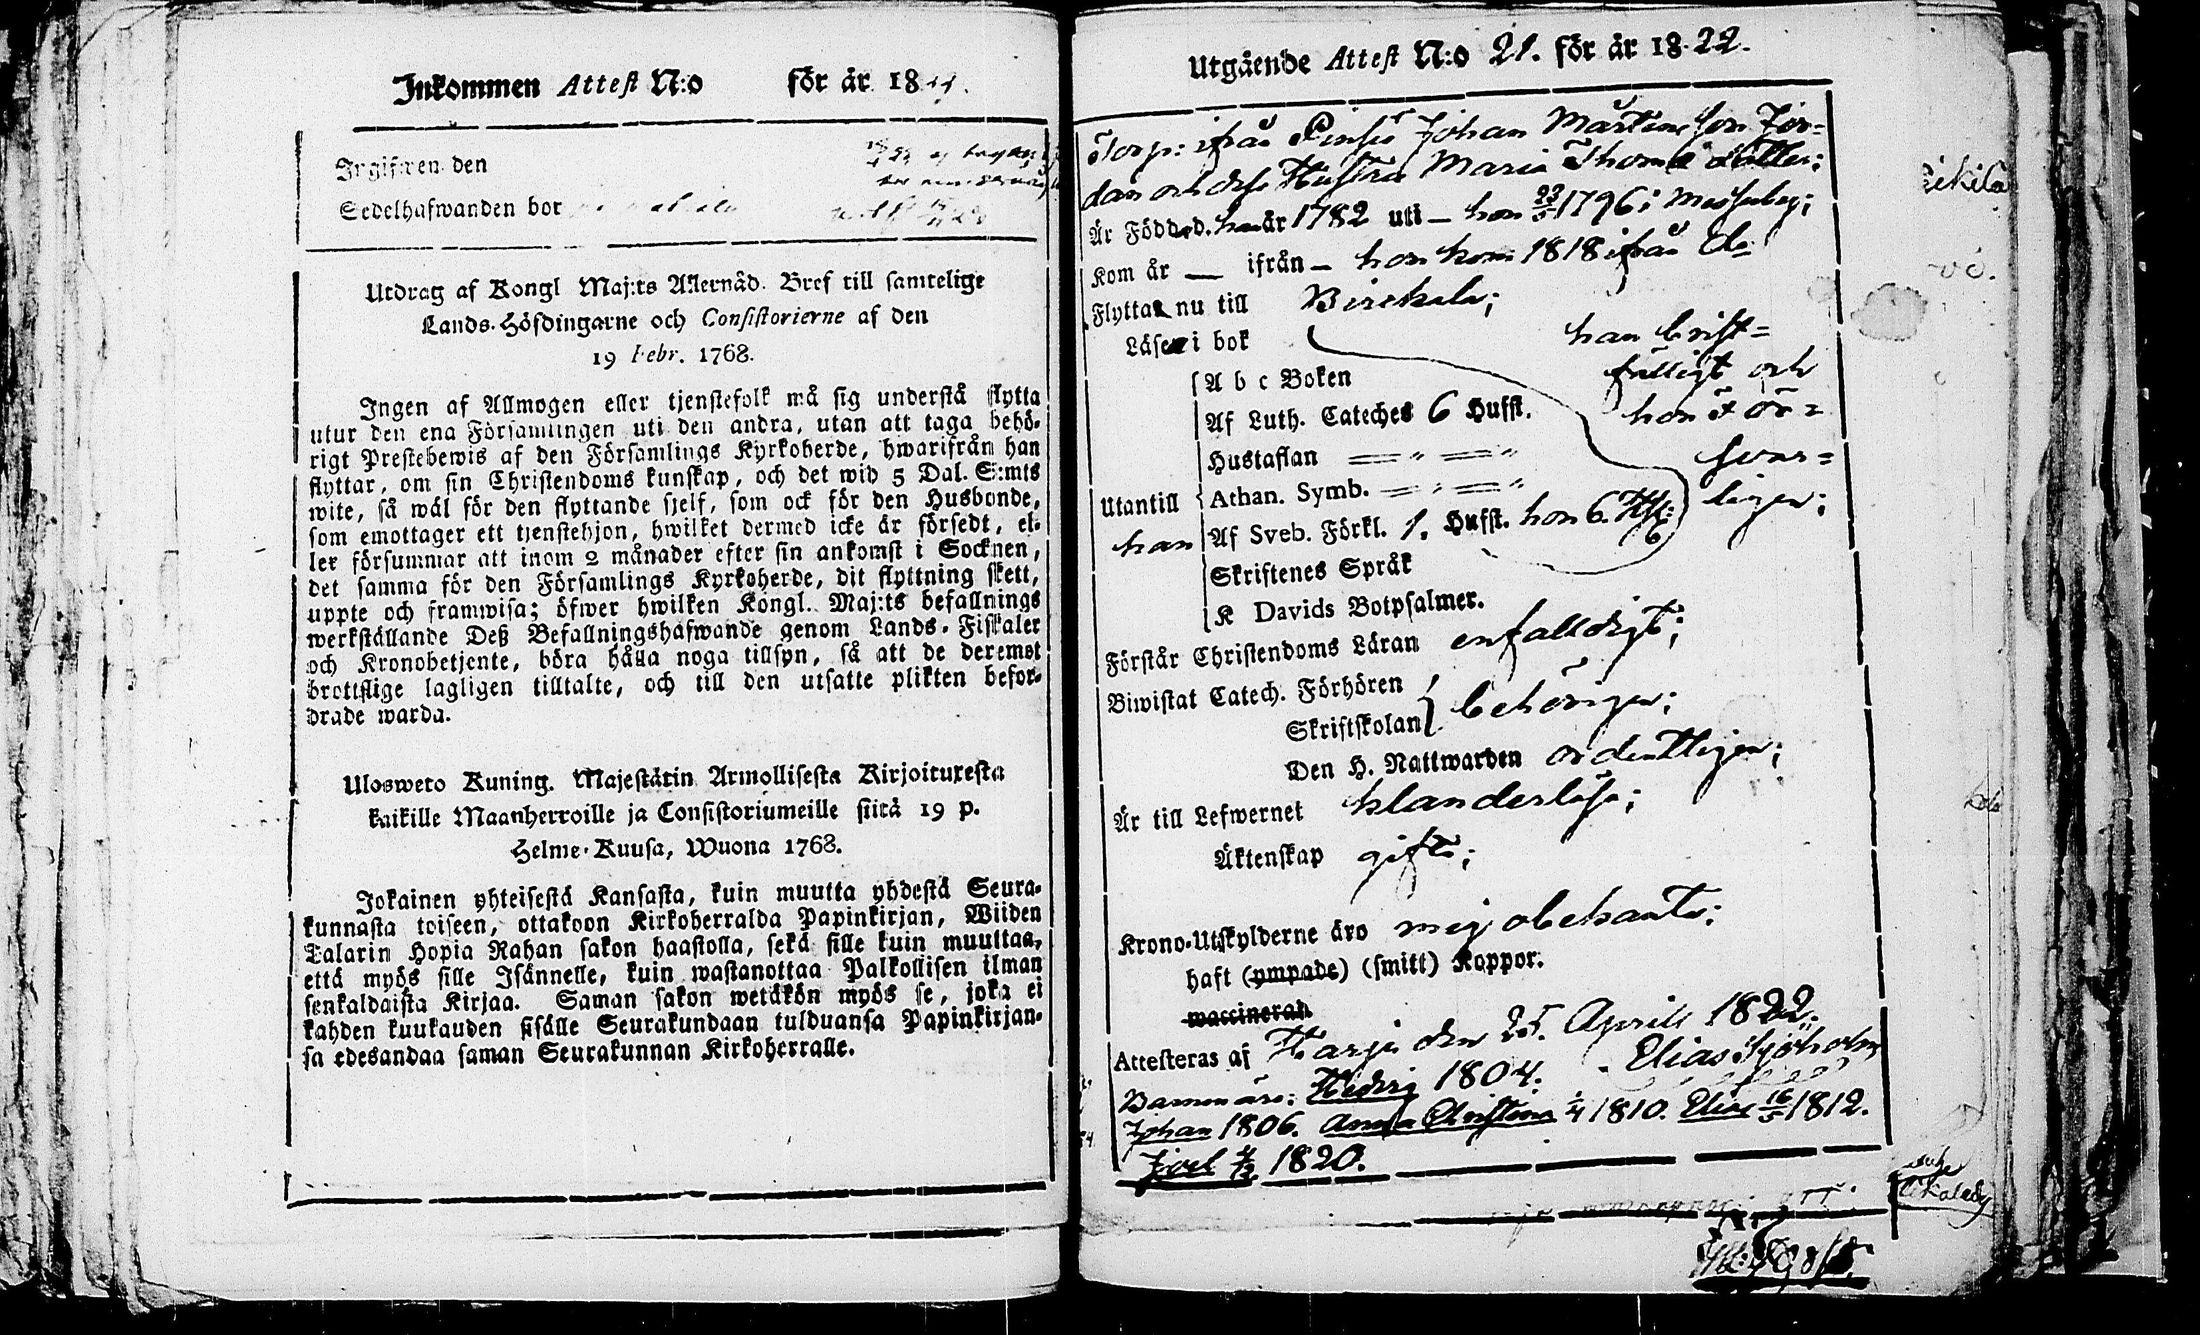 Inkommen Attest N:o för år 18
Ingifwen den
Sedelhafwanden bor
Utdrag af Kongl Maj:ts Allernåd. Bref till samtelige
Lands-Höfdingarne och Consistorierne af den
19 Febr. 1768.
Ingen af Allmogen eller tjenstefolk må sig understå flytta
utur den ena Församlingen uti den andra, utan att taga behö-
rigt Prestebewis af den Församlings Kyrkoherde, hwarifrån han
flyttar, om sin Christendoms kunskap, och det wid 5 Dal. S:mts
wite, så wäl för den flyttande sjelf, som ock för den Husbonde,
som emottager ett tjenstehjon, hwilket dermed icke är försedt, el-
ler försummar att inom 2 månader efter sin ankomst i Socknen,
det samma för den Församlings Kyrkoherde, dit flyttning skett,
uppte och framwisa; öfwer hwilken Kongl. Maj:ts befallnings
werkställande Deß Befallningshafwande genom Lands-Fiskaler
och Kronobetjente, böra hålla noga tillsyn, så att de deremot
brottslige lagligen tilltalte, och till den utsatte plikten befor-
drade warda.
Ulosweto Kuning. Majestätin Armollisesta Kirjoituxesta
kaikille Maanherroille ja Consistoriumeille siitä 19 p.
Helme-Kuusa, Wuona 1768.
Jokainen yhteisestä Kansasta, kuin muutta yhdestä Seura-
kunnasta toiseen, ottakoon Kirkoherralda Papinkirjan, Wiiden
Talarin Hopia Rahan sakon haastolla, sekä sille kuin muuttaa,
että myös sille Isännelle, kuin wastanottaa Palkollisen ilman
senkaldaista Kirjaa. Saman sakon wetäkön myös se, joka ei
kahden kuukauden sisälle Seurakundaan tulduansa Papinkirjan-
sa edesandaa saman Seurakunnan Kirkoherralle.
Utgående Attest N:o 21. för år 18 22.
Torp: ifrån Johan Mårtensson Jor=
dan och dess Hustru Maria Thomæ dotter;
Är Född d. han år 1782 uti — hon 23/5 1796 i Messuby;
Kom år — ifrån — hon kom 1818 ifrån do
Flyttar nu till Birckala;
Läser i bok han brist=
fälligt och
hon för=
svar=
ligen;
A b c Boken
Af Luth. Cateches 6 Hufst.
Hustaflan
Athan. Symb.
Utantill
han Af Sveb. Förkl. 1. Hufst. hon 6. Hst:
Skriftenes Språk
K Davids Botpsalmer.
Förstår Christendoms Läran enfalldigt;
Biwistat Catech. Förhören
Skriftskolan behörigen;
Den H. Nattwarden ordentligen;
Är till Lefwernet klanderlöse;
Äktenskap gifte;
Krono-Utskylderne äro mig obekante;
haft (ympade) (smitt) Koppor.
waccinerad
Attesteras af Harju den 25. Aprill 1822.
Elias Sjöholm
Barnen äro: Hedvig 1804.
Johan 1806. Anna Christina 1/4 1810. Elias 16/5 1812.
Joel 4/2 1820.